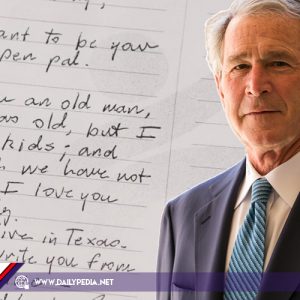 ant to be your
pen pal.
an old man,
oo old, but I
kids; and
we have not
I love you
ive in Texas.
write you from
WWW.DAILYPEDIA.NET